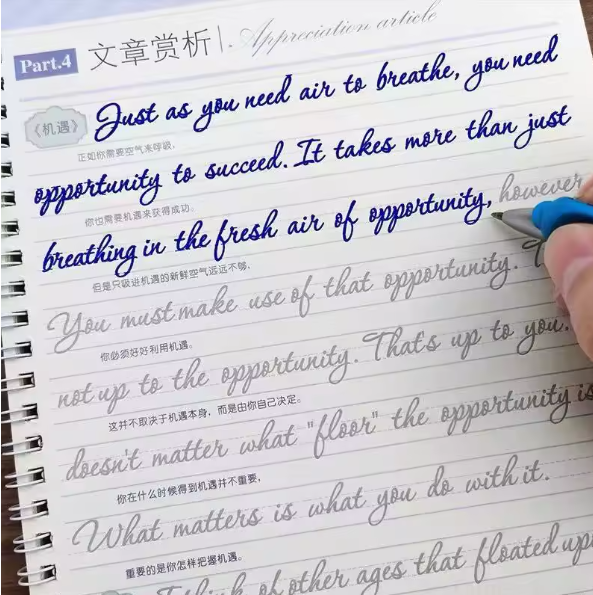 Part.4 文章赏析 Appreciation article
《机遇》 Just as you need air to breathe, you need
正如你需要空气来呼吸,
opportunity to succeed. It takes more than just
你也需要机遇来获得成功。
breathing in the fresh air of opportunity, however
但是只吸进机遇的新鲜空气远远不够,
You must make use of that opportunity.
你必须好好利用机遇。
not up to the opportunity. That's up to you.
这并不取决于机遇本身, 而是由你自己决定。
doesn't matter what "floor" the opportunity is
你在什么时候得到机遇并不重要,
What matters is what you do with it.
重要的是你怎样把握机遇。
I think of other ages that floated up